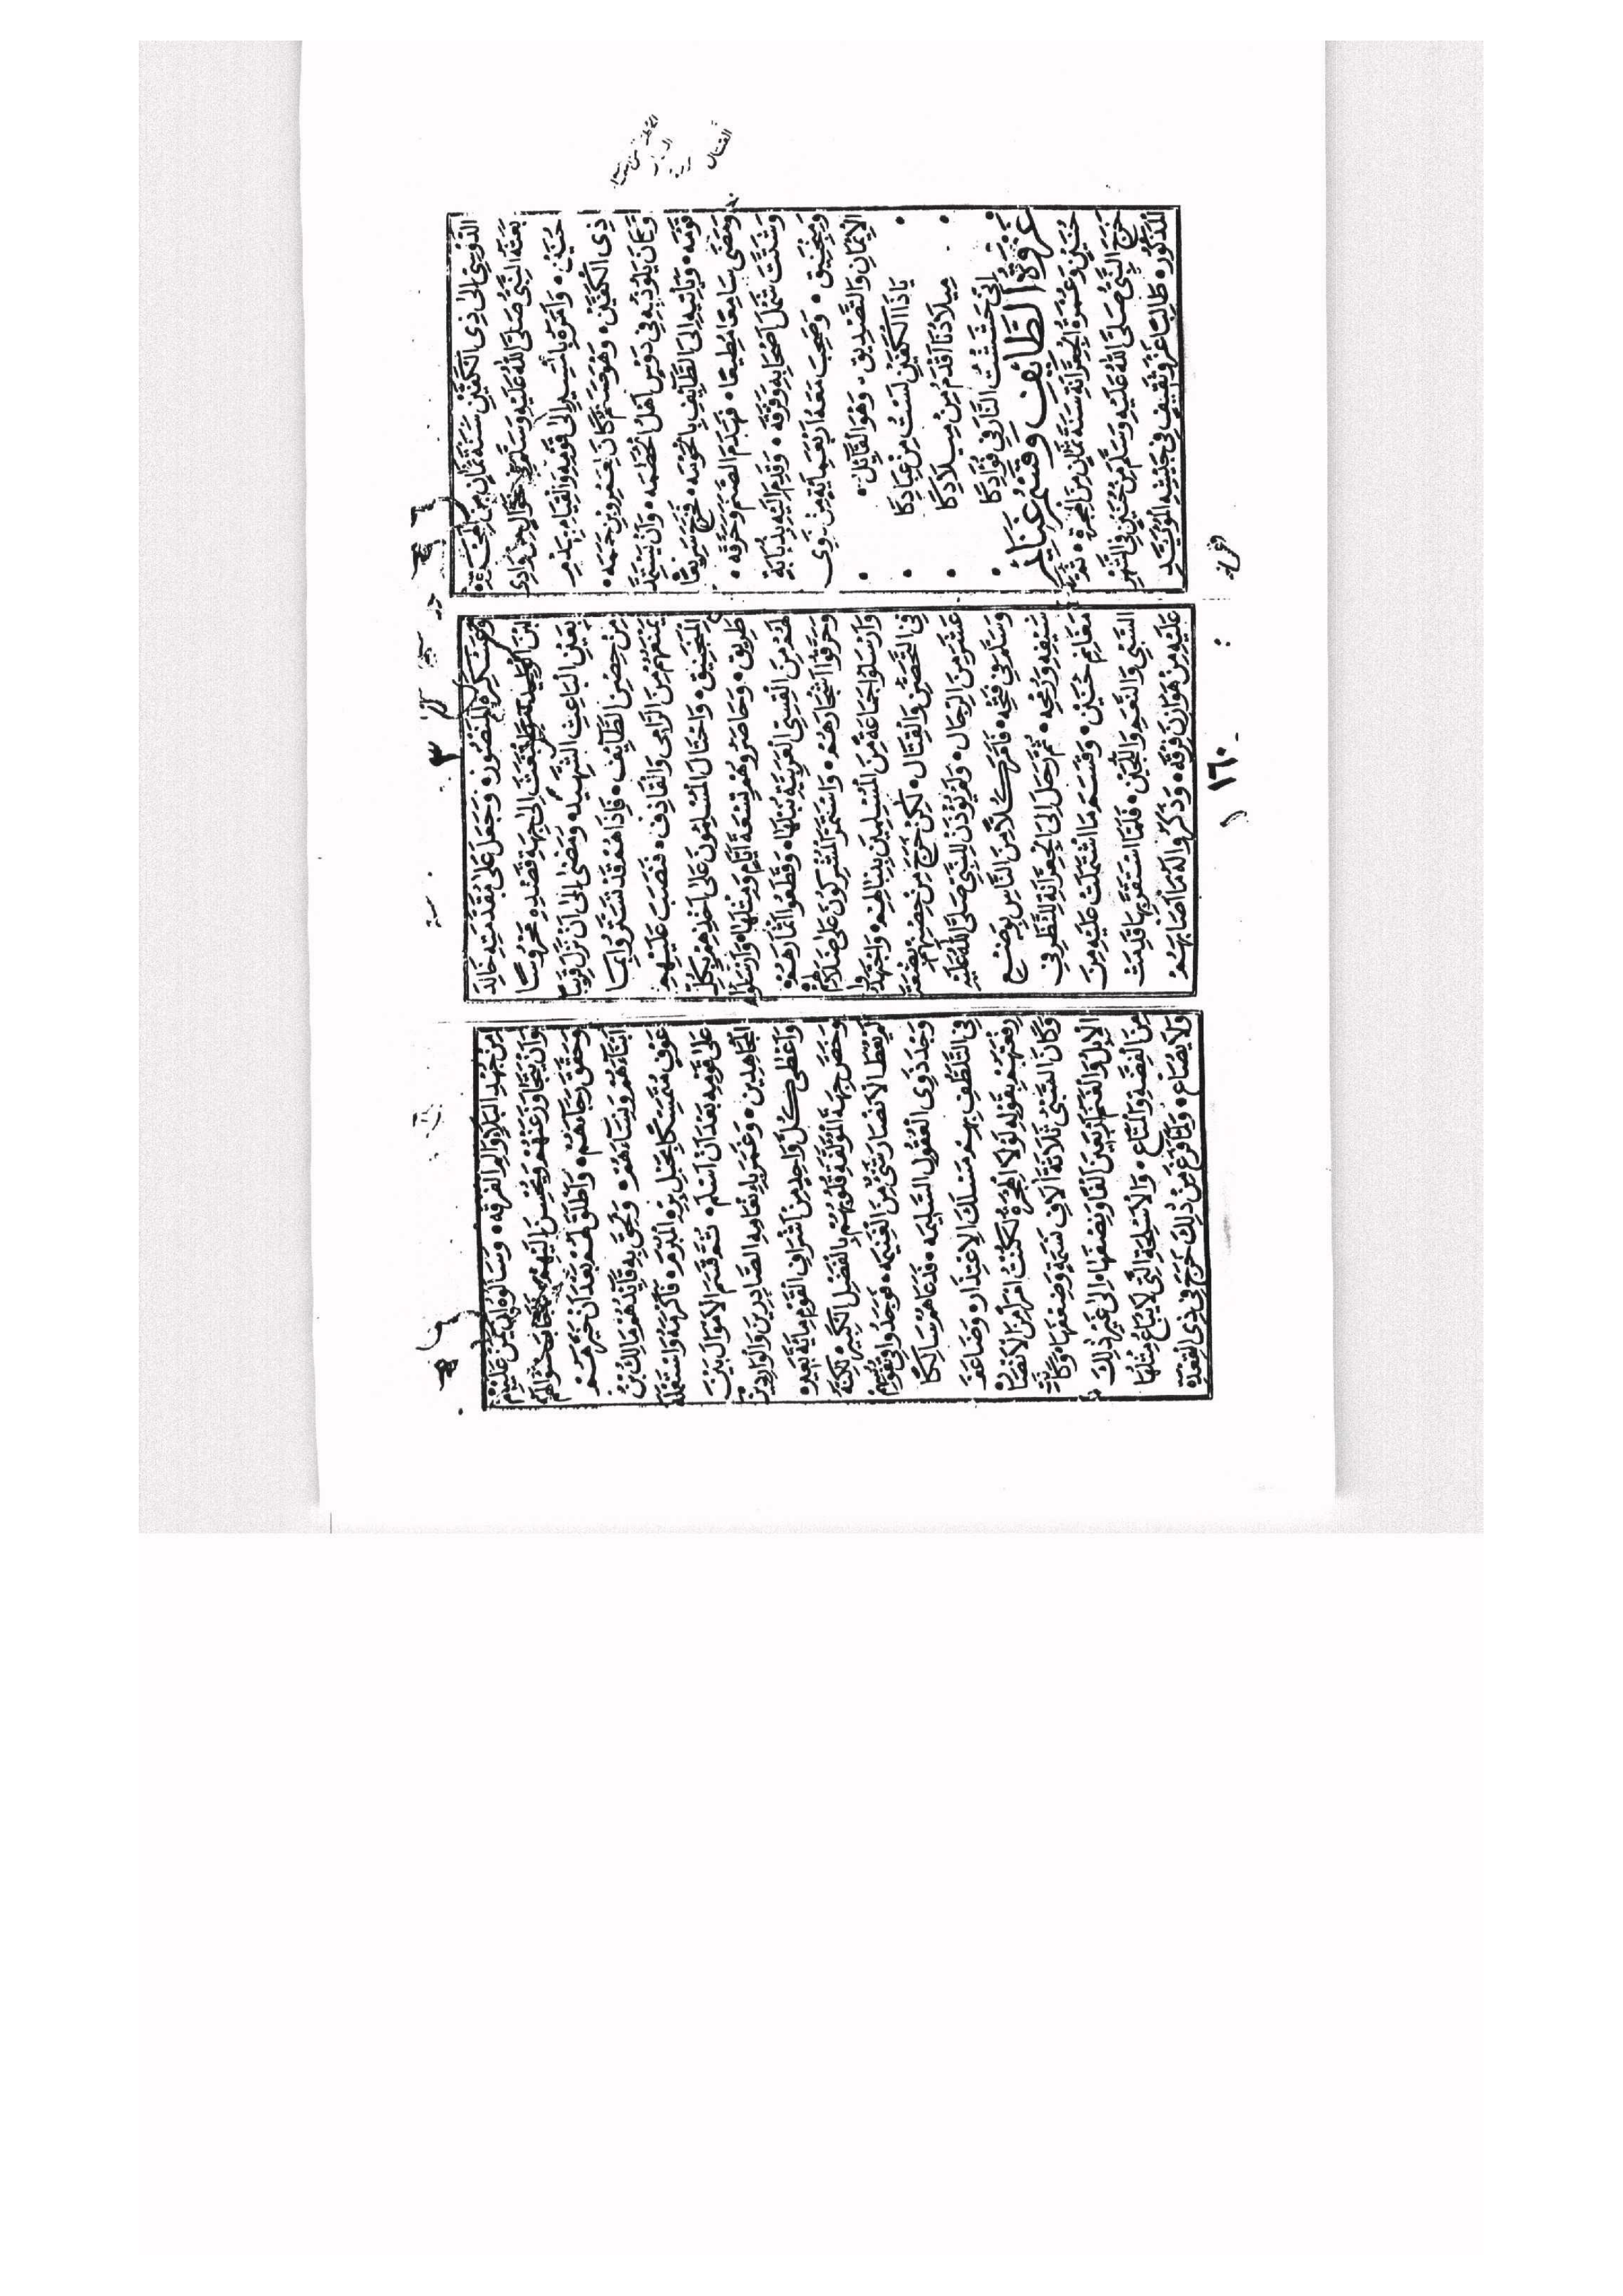 الدوسي الى ذي الكفين سنة ثمان من الهجرة
بعثه النبي صلى الله عليه وسلم في شوال من وادي
حنين • وامره بالسير الى قومه والقيام بهدم
ذي الكفين • وهو صنم كان لعمرو بن حممه •
وكان يلوذ به في دوس اهل الحطمه • وان يستمد
قومه • وياتيه الى الطايف بالحومه • فخرج سريعا
ومضى سامعا مطيعا • فهدم الصنم وحرقه •
وشتت شمل اصحابه وفرقه • وقدم اليه بدبابة
ومنجنيق • وصحب معه اربعماية من ذوي
الايمان والتصديق • وهو القائل •
• ياذا الكفين لست من عبادكا •
• ميلادنا اقدم من ميلادكا •
• اني حششت النار في فؤادكا •
غزوة الطائف وقسم غنايم
حنين وعمرة الجعرانة سنة ثمان من الهجرة • ثم
خرج النبي صلى الله عليه وسلم من حنين في الشهر
المذكور • طالبا غزو ثقيف في جيشه المؤيد
وعسكره المنصور • وجعل على مقدمته خالد
ابن الوليد • الى جهة قصده محروسا
بعين الباعث الشهيد • ومضى الى ان نزل قريبا
من حصن الطايف • فاذا هم قد تستروا بما
يمنعهم من الرامي والقاذف • فنصب عليهم
المنجنيق • واحتال المسلمون على اخذهم بكل
طريق • وحاصروهم تسعة ايام ومثلها • وارسلوا
لهم من القسي العربية نبلها • وقطعوا اثمارهم
وحرقوا اشجارهم • واستمر المشركون على ضلالهم
وارسلوا جماعة من المسلمين بنبالهم • واجتهدوا
في التحصن والقتال • لكن خرج من حصنهم بضعة
عشر من الرجال • ولم يؤذن للنبي صلى الله عليه
وسلم في فتحه • فامر كلا من الناس بوضع
سيفه ورمحه • ثم رحل الى الجعرانة للنظر في
مغانم حنين • وقسم ما اشتملت عليه من
السبي والنعم واللجين • فلما استقر بها قدمت
عليه من هوازن فرقه • وذكروا له ما اصابهم
من جهد البلاء والم الفرقه • وسالوه ان يمن عليهم
وان يتجاوز عنهم ويحسن اليهم • فاجاب سؤالهم
وحقق رجاءهم • واطلق لهم بعد ان خيرهم
ابناءهم ونساءهم • ولحق به قائدهم مالك بن
عوف متمسكا بحبل بره المبرم • فاكرمه واستعمله
على قومه بعد ان اسلم • ثم قسم الاموال بين
المجاهدين • وغمر بانعامه الصادرين والواردين
واعطى كل واحد من اشراف القوم ماية بعير •
وخص جهة المؤلفة قلوبهم بالفضل الكبير • لكنه
لم يعط الانصار شيئا من الغنيمه • فوجدوا في نفوسهم
وجد ذوي العقول السليمه • فدعاهم سالكا
في التلطف بهم مسلك الاعتذار • وضاعف
رغبتهم بقوله لولا الهجرة لكنت امرأ من الانصار
وكان السبي ثلاثة الاف نسمة وضعفها • وكانت
الابل والغنم اربعين الفا ونصفها • الى غير ذلك
من الفضة والمتاع • والاسلحة التي لا يباع مثلها
ولا يضاع • ولما فرغ من ذلك خرج في ذي القعدة
١٦٠